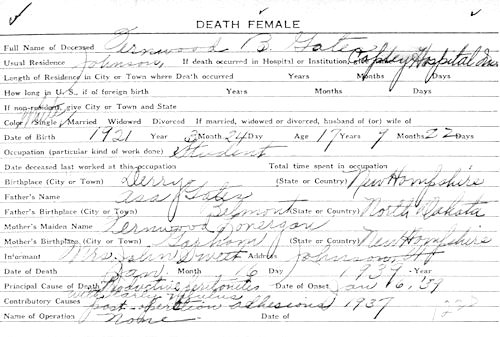 DEATH FEMALE
Full Name of Deceased Fernwood B. Gates
Usual Residence Johnson, If death occurred in Hospital or Institution, give Copley Hospital Inc.
Length of Residence in City or Town where Death occurred Years Months Days
How long in U. S., if of foreign birth Years Months Days
If non-resident, give City or Town and State
Color White Single Married Widowed Divorced If married, widowed or divorced, husband of (or) wife of
Date of Birth 1921 Year 3 Month 24 Day Age 17 Years 9 Months 22 Days
Occupation (particular kind of work done) Student
Date deceased last worked at this occupation Total time spent in occupation
Birthplace (City or Town) Derry (State or Country) New Hampshire
Father's Name Asa Gates
Father's Birthplace (City or Town) (State or Country) North Dakota
Mother's Maiden Name Fernwood
Mother's Birthplace (City or Town) Gorham (State or Country) New Hampshire
Informant Mrs. John Address Johnson, Vt
Date of Death Jan Month 16 Day 1939 -Year
Principal Cause of Death Productive peritonitis Date of Onset Jan 16, 39
Contributory Causes with early
post-operation adhesions 1937
Name of Operation None Date of